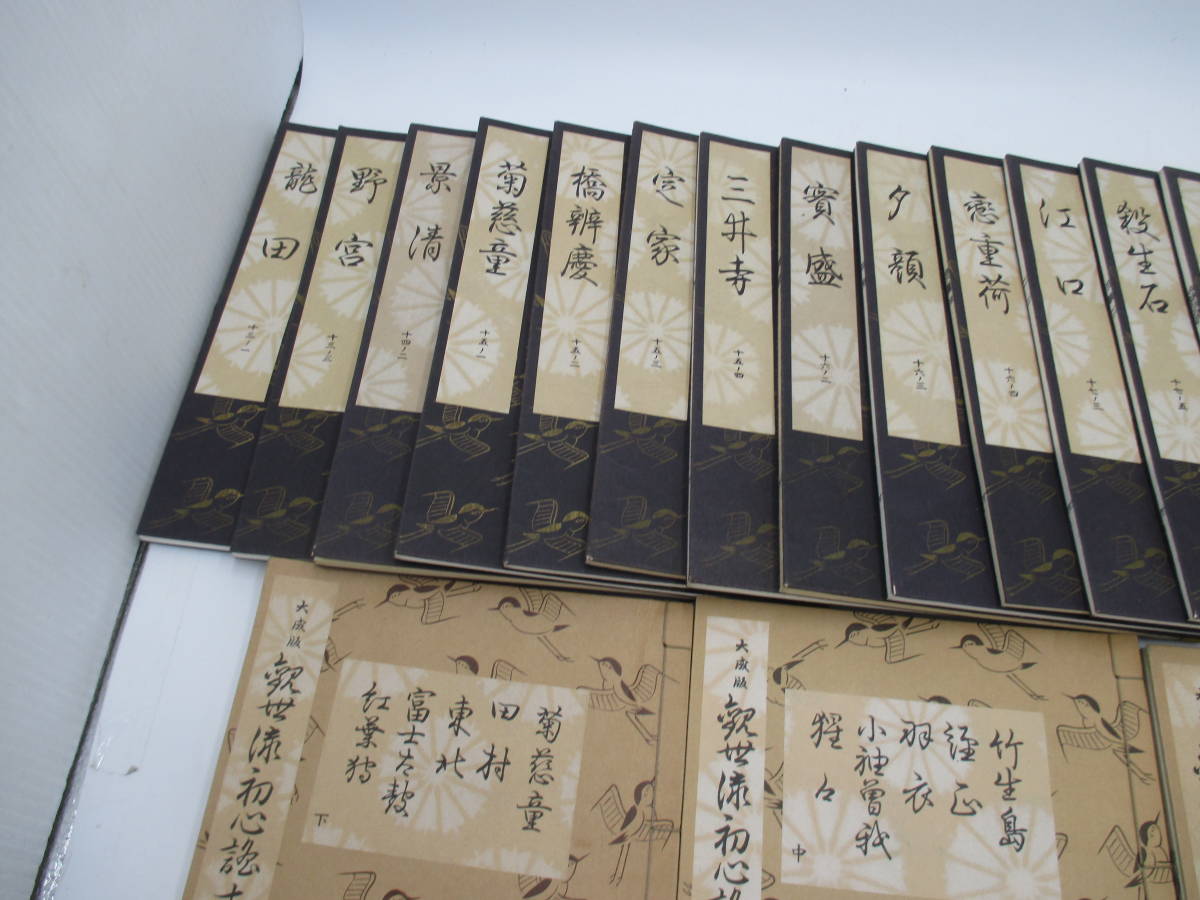 龍田
十三ノ一
野宮
十三ノ三
景清
十四ノ二
菊慈童
十五ノ一
橋辨慶
十五ノ二
定家
十五ノ三
三井寺
十五ノ四
實盛
十六ノ二
夕顔
十六ノ三
戀重荷
十六ノ四
江口
十七ノ三
殺生石
十七ノ五
大成版
觀世流初心謠本
菊慈童
田村
東北
富士太鼓
紅葉狩
下
大成版
觀世流初心謠
竹生島
經正
羽衣
小袖曾我
猩々
中